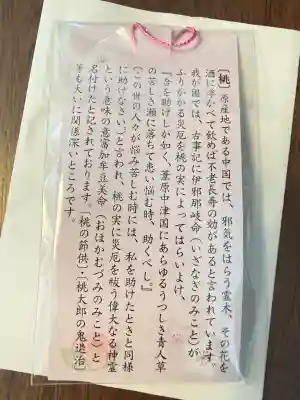 【桃】原産地である中国では、邪気をはらう霊木、その花を
酒に浮かべて飲めば不老長寿の効があると言われています。
我が国では、古事記に伊邪那岐命（いざなぎのみこと）が
ふりかかる災厄を桃の実によってはらいよけ、
『吾を助けしが如く、葦原中津国にあらゆるうつしき青人草
の苦しき瀬に落ちて患い悩む時、助くべし。』
（・この世の人々が悩み苦しむ時には、私を助けたときと同様
に助けなさい）と言われ、桃の実に災厄を祓う偉大なる神霊
という意味の意富加牟豆美命（おほかむづみのみこと）と
名付けたと記されております。桃の節供・桃太郎の鬼退治
等も大いに関係深いところです。